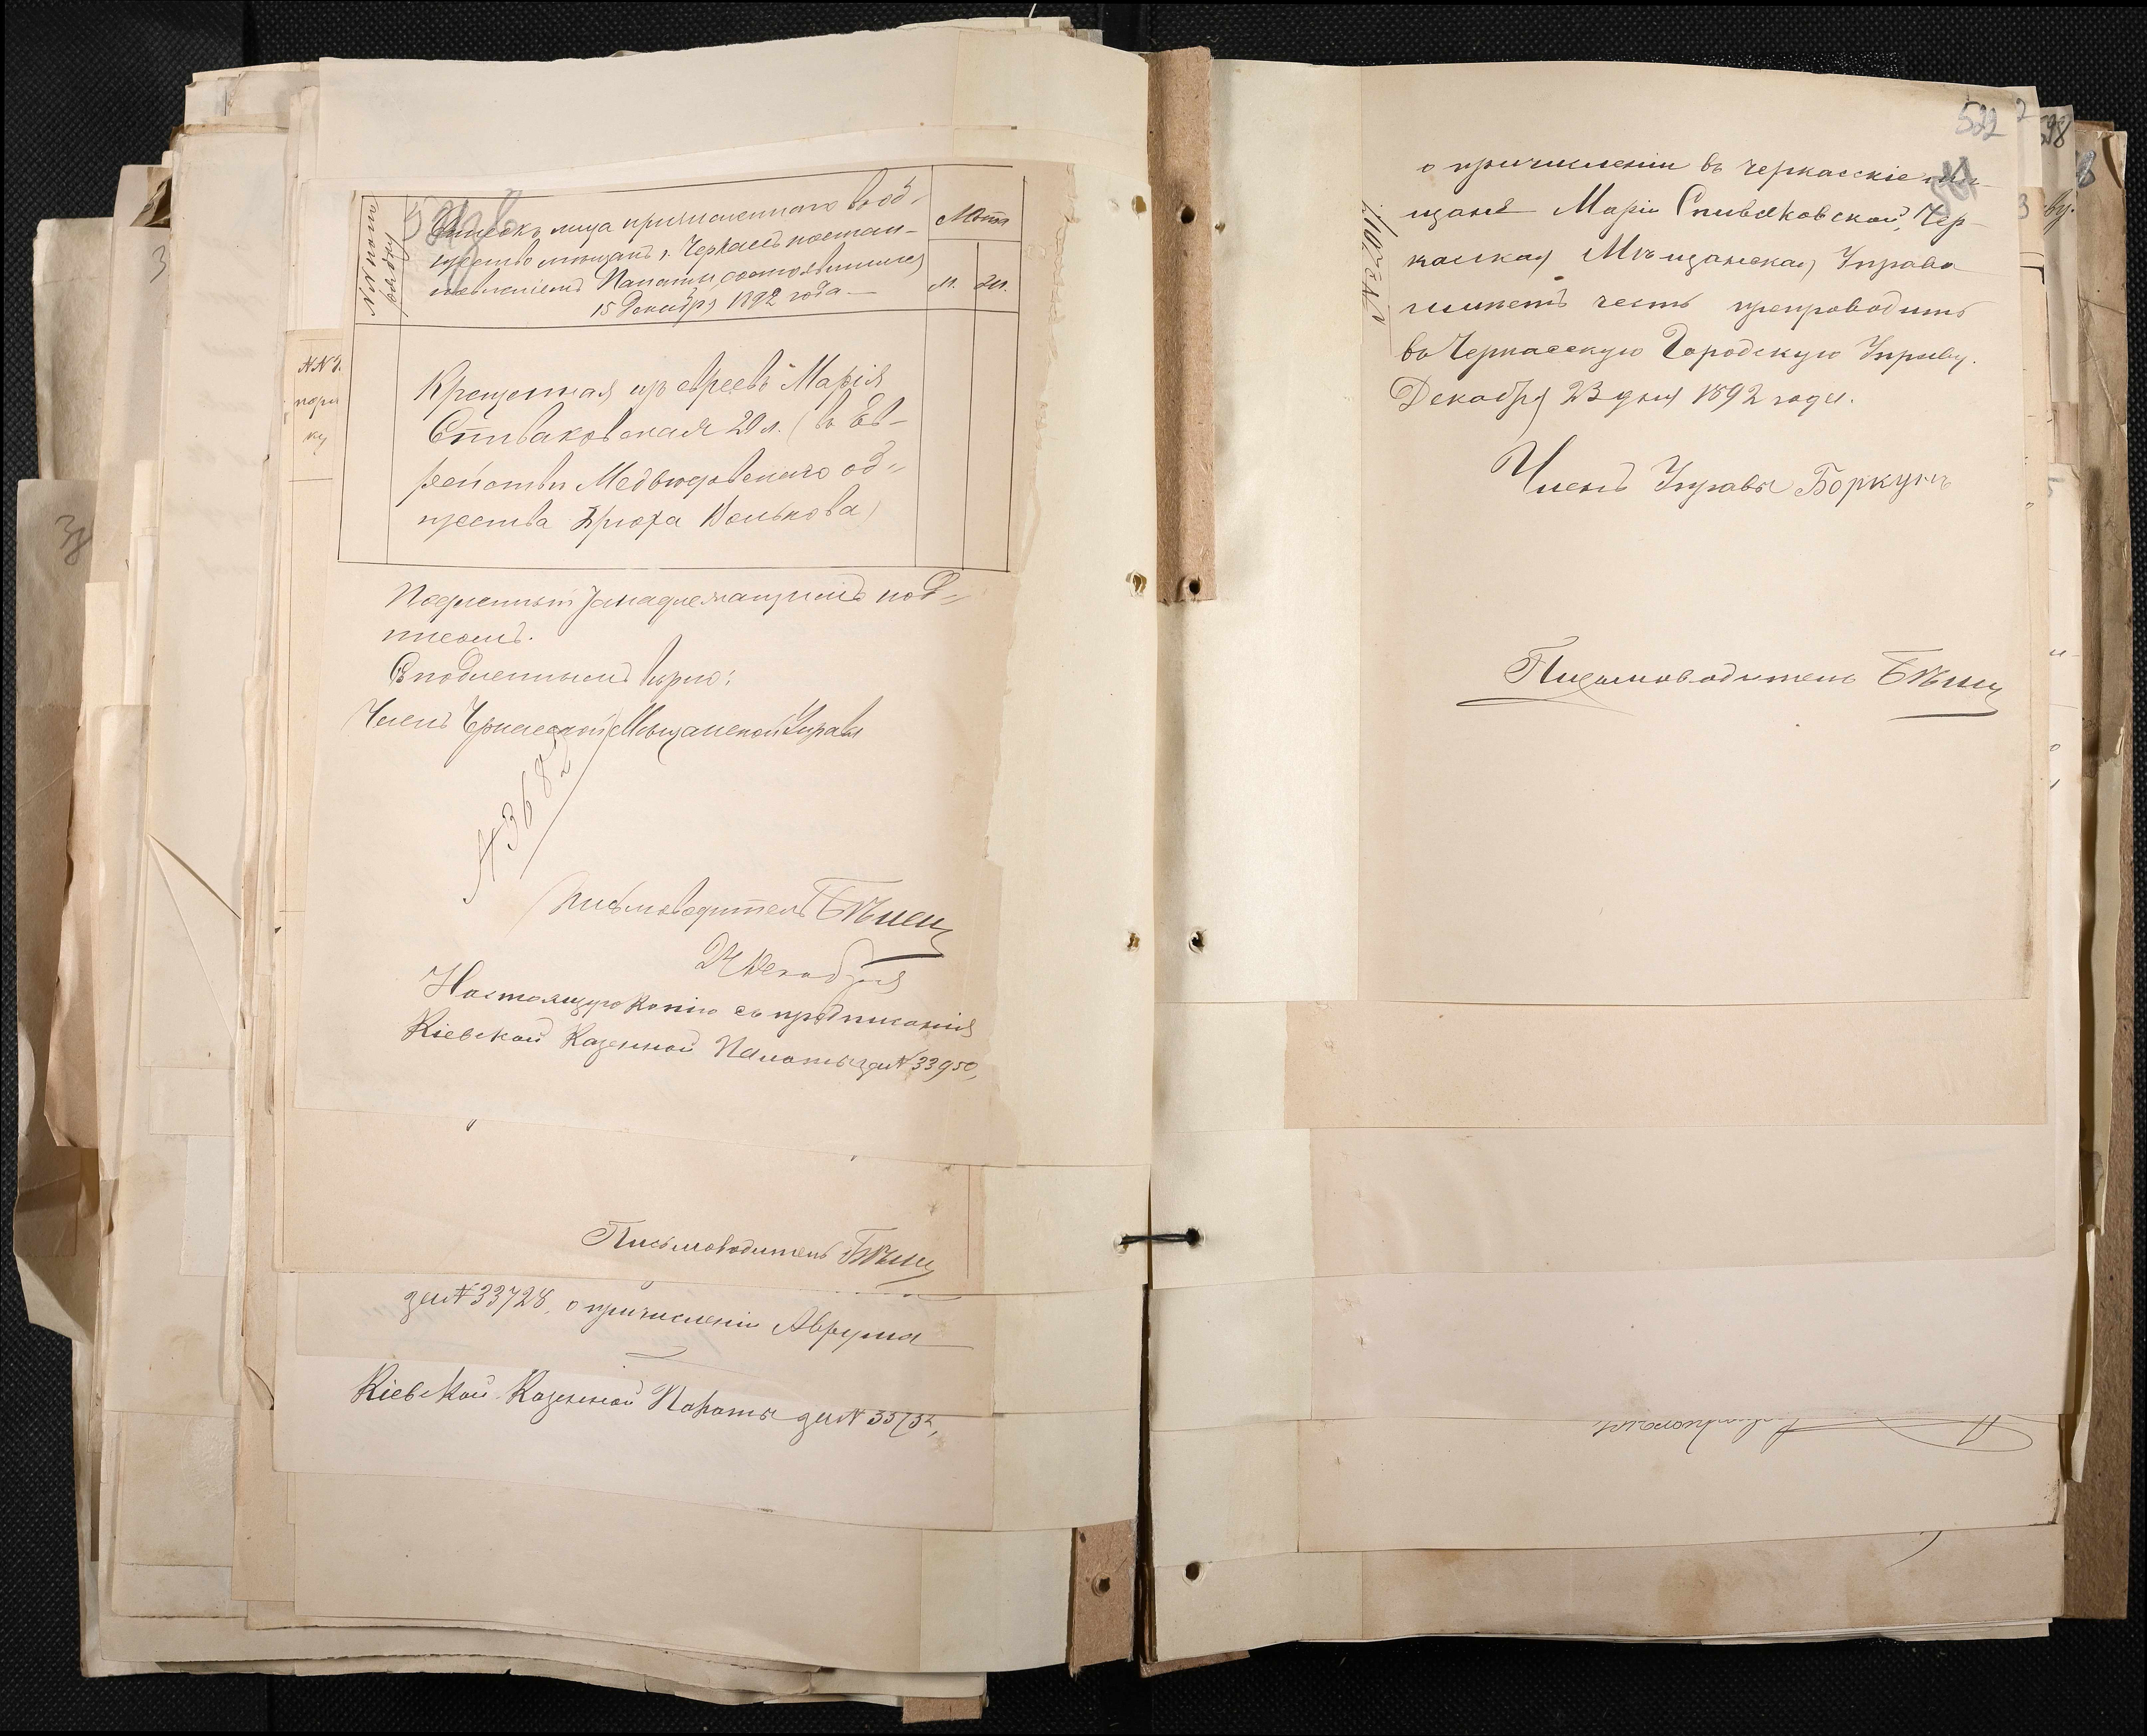 №№ по по
рядку
521 об
Списокъ лица причисленнаго въ об-
щество мѣщанъ г. Черкассъ постан-
овленіемъ Палаты, состоявшимся
15 Декабря 1892 года —
Лѣта
М. Ж.
Крещенная изъ евреевъ Марія
Спиваковская 20 л. (въ Ев-
рействѣ Медвѣдовскаго об-
щества Брюха Волькова)
Подлинный за надлежащимъ под-
писомъ.
Съ подлиннымъ вѣрно:
Членъ Черкасской Мѣщанской Управы
№ 3682
Письмоводитель
24 Декабря
Настоящую копію съ предписанія
Кіевской Казенной Палаты за № 33950,
№№
поря
ку
Письмоводитель
за № 33728, о причисленіи Аврума
Кіевской Казенной Палаты за №
522
о причисленіи въ Черкасскіе мѣ-
щане Маріи Спиваковской, Чер-
касская Мѣщанская Управа
имѣетъ честь препроводить
въ Черкасскую Городскую Управу.
Декабря 23 дня 1892 года.
Членъ Управы Боркунъ
Письмоводитель